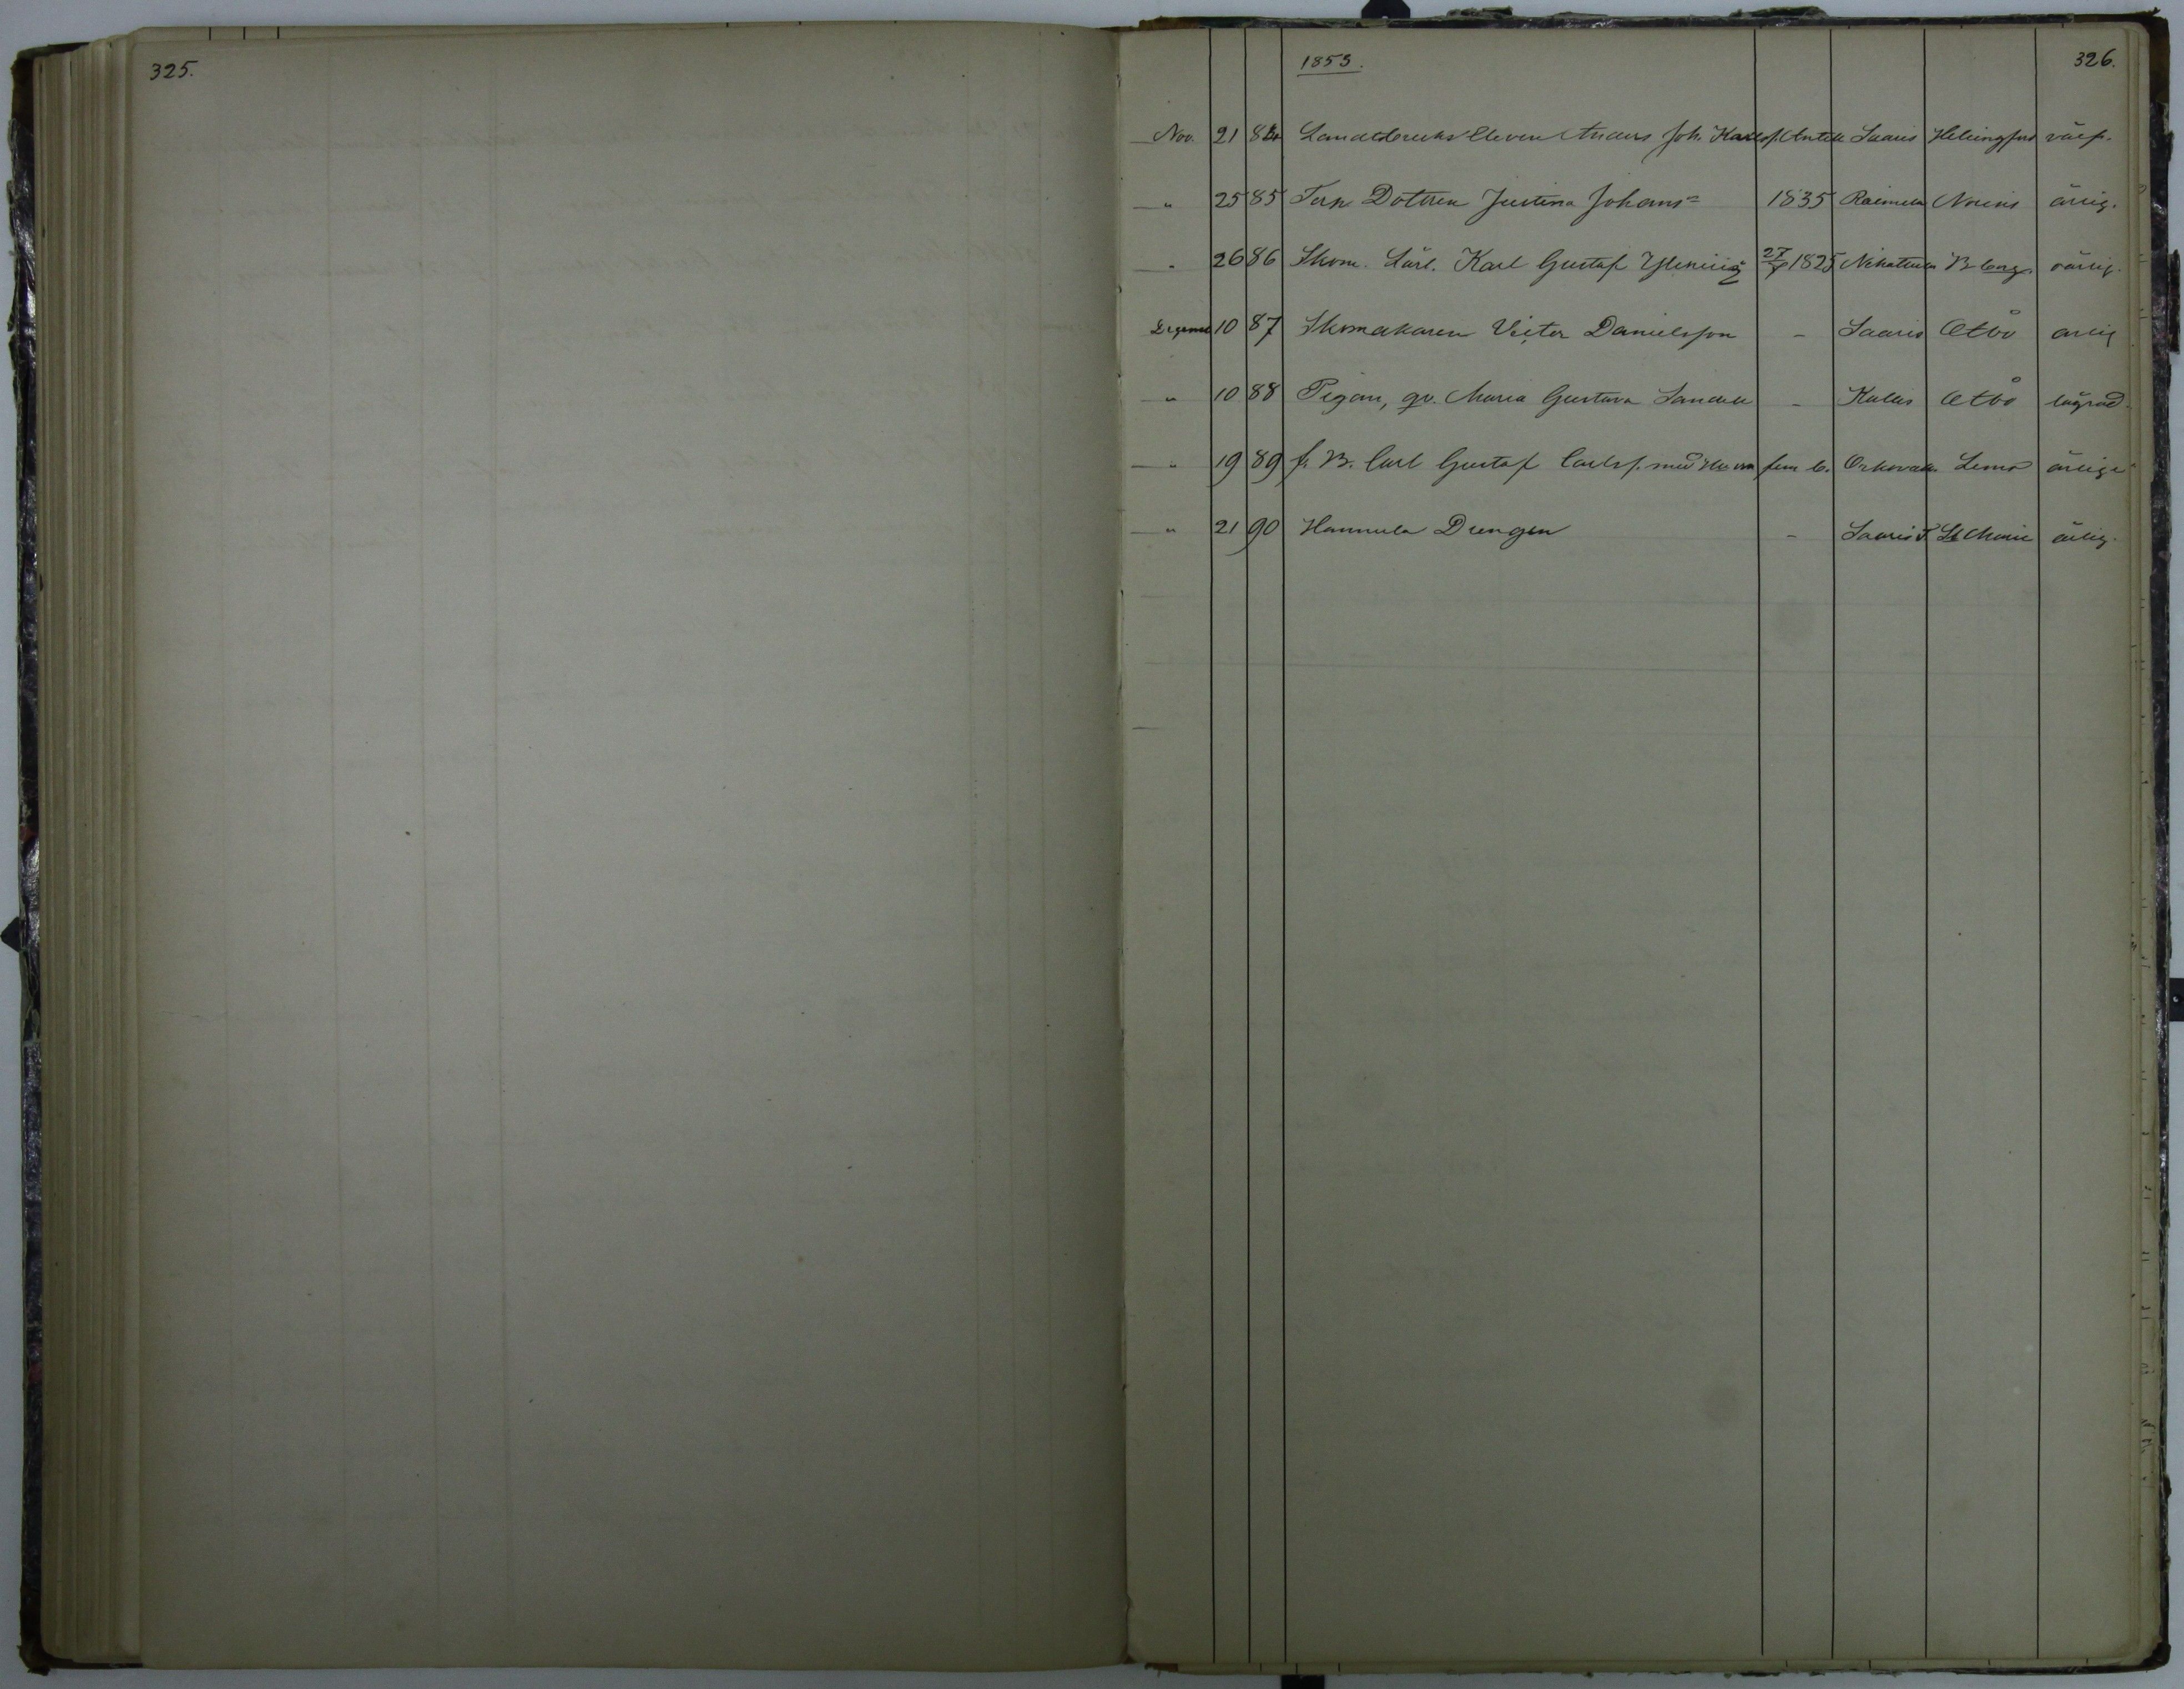 325.
1853.
326.
Nov. 21 84 Landtbruks Eleven Anders Joh. Karlsf. Antell Saaris Helsingfors
" 25 85 Torp. Dottren Justina Johans= 1835 Raimela Nousis ärlig.
" 26 86 Skom. Lärl. Karl Gustaf 1825 B borg
10 87 Skomakaren Victor Danielsson - Saaris Åbo ärlig
" 10 88 Pigan, qv. Maria Gustava Sandell - Kalas Åbo
" 19 89 f. B. Carl Gustaf Carlsf. med fem b. Lemo ärliga
" 21 90 Hannula Drengen - Saaris St Marie ärlig.